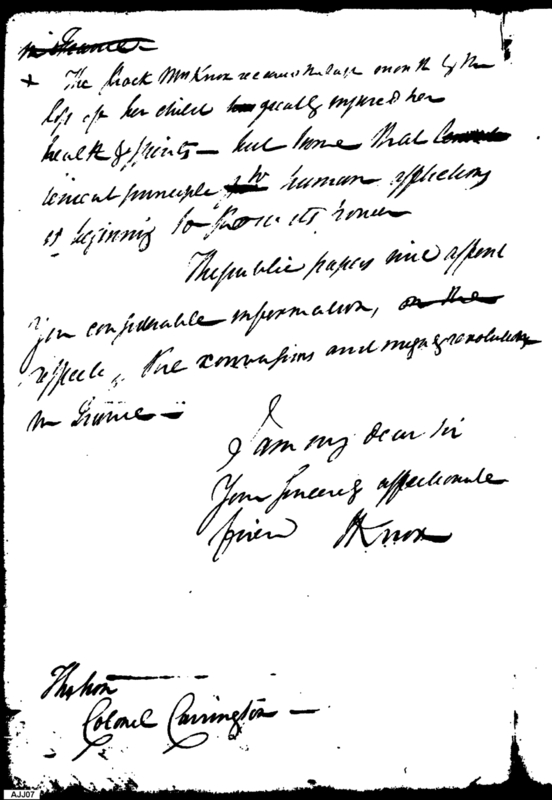 in France
+ The shock Mrs Knox received the last month by the
loss of her child has greatly injured her
health & spirits — but time that
lenient principle human affections
is beginning to its power
The public papers will afford
You considerable information, on the
affects, the convulsions and revolutions
in France —
I am my dear sir
Your sincerely affectionate
friend HKnox
The hon
Colonel Carrington —
AJJ07